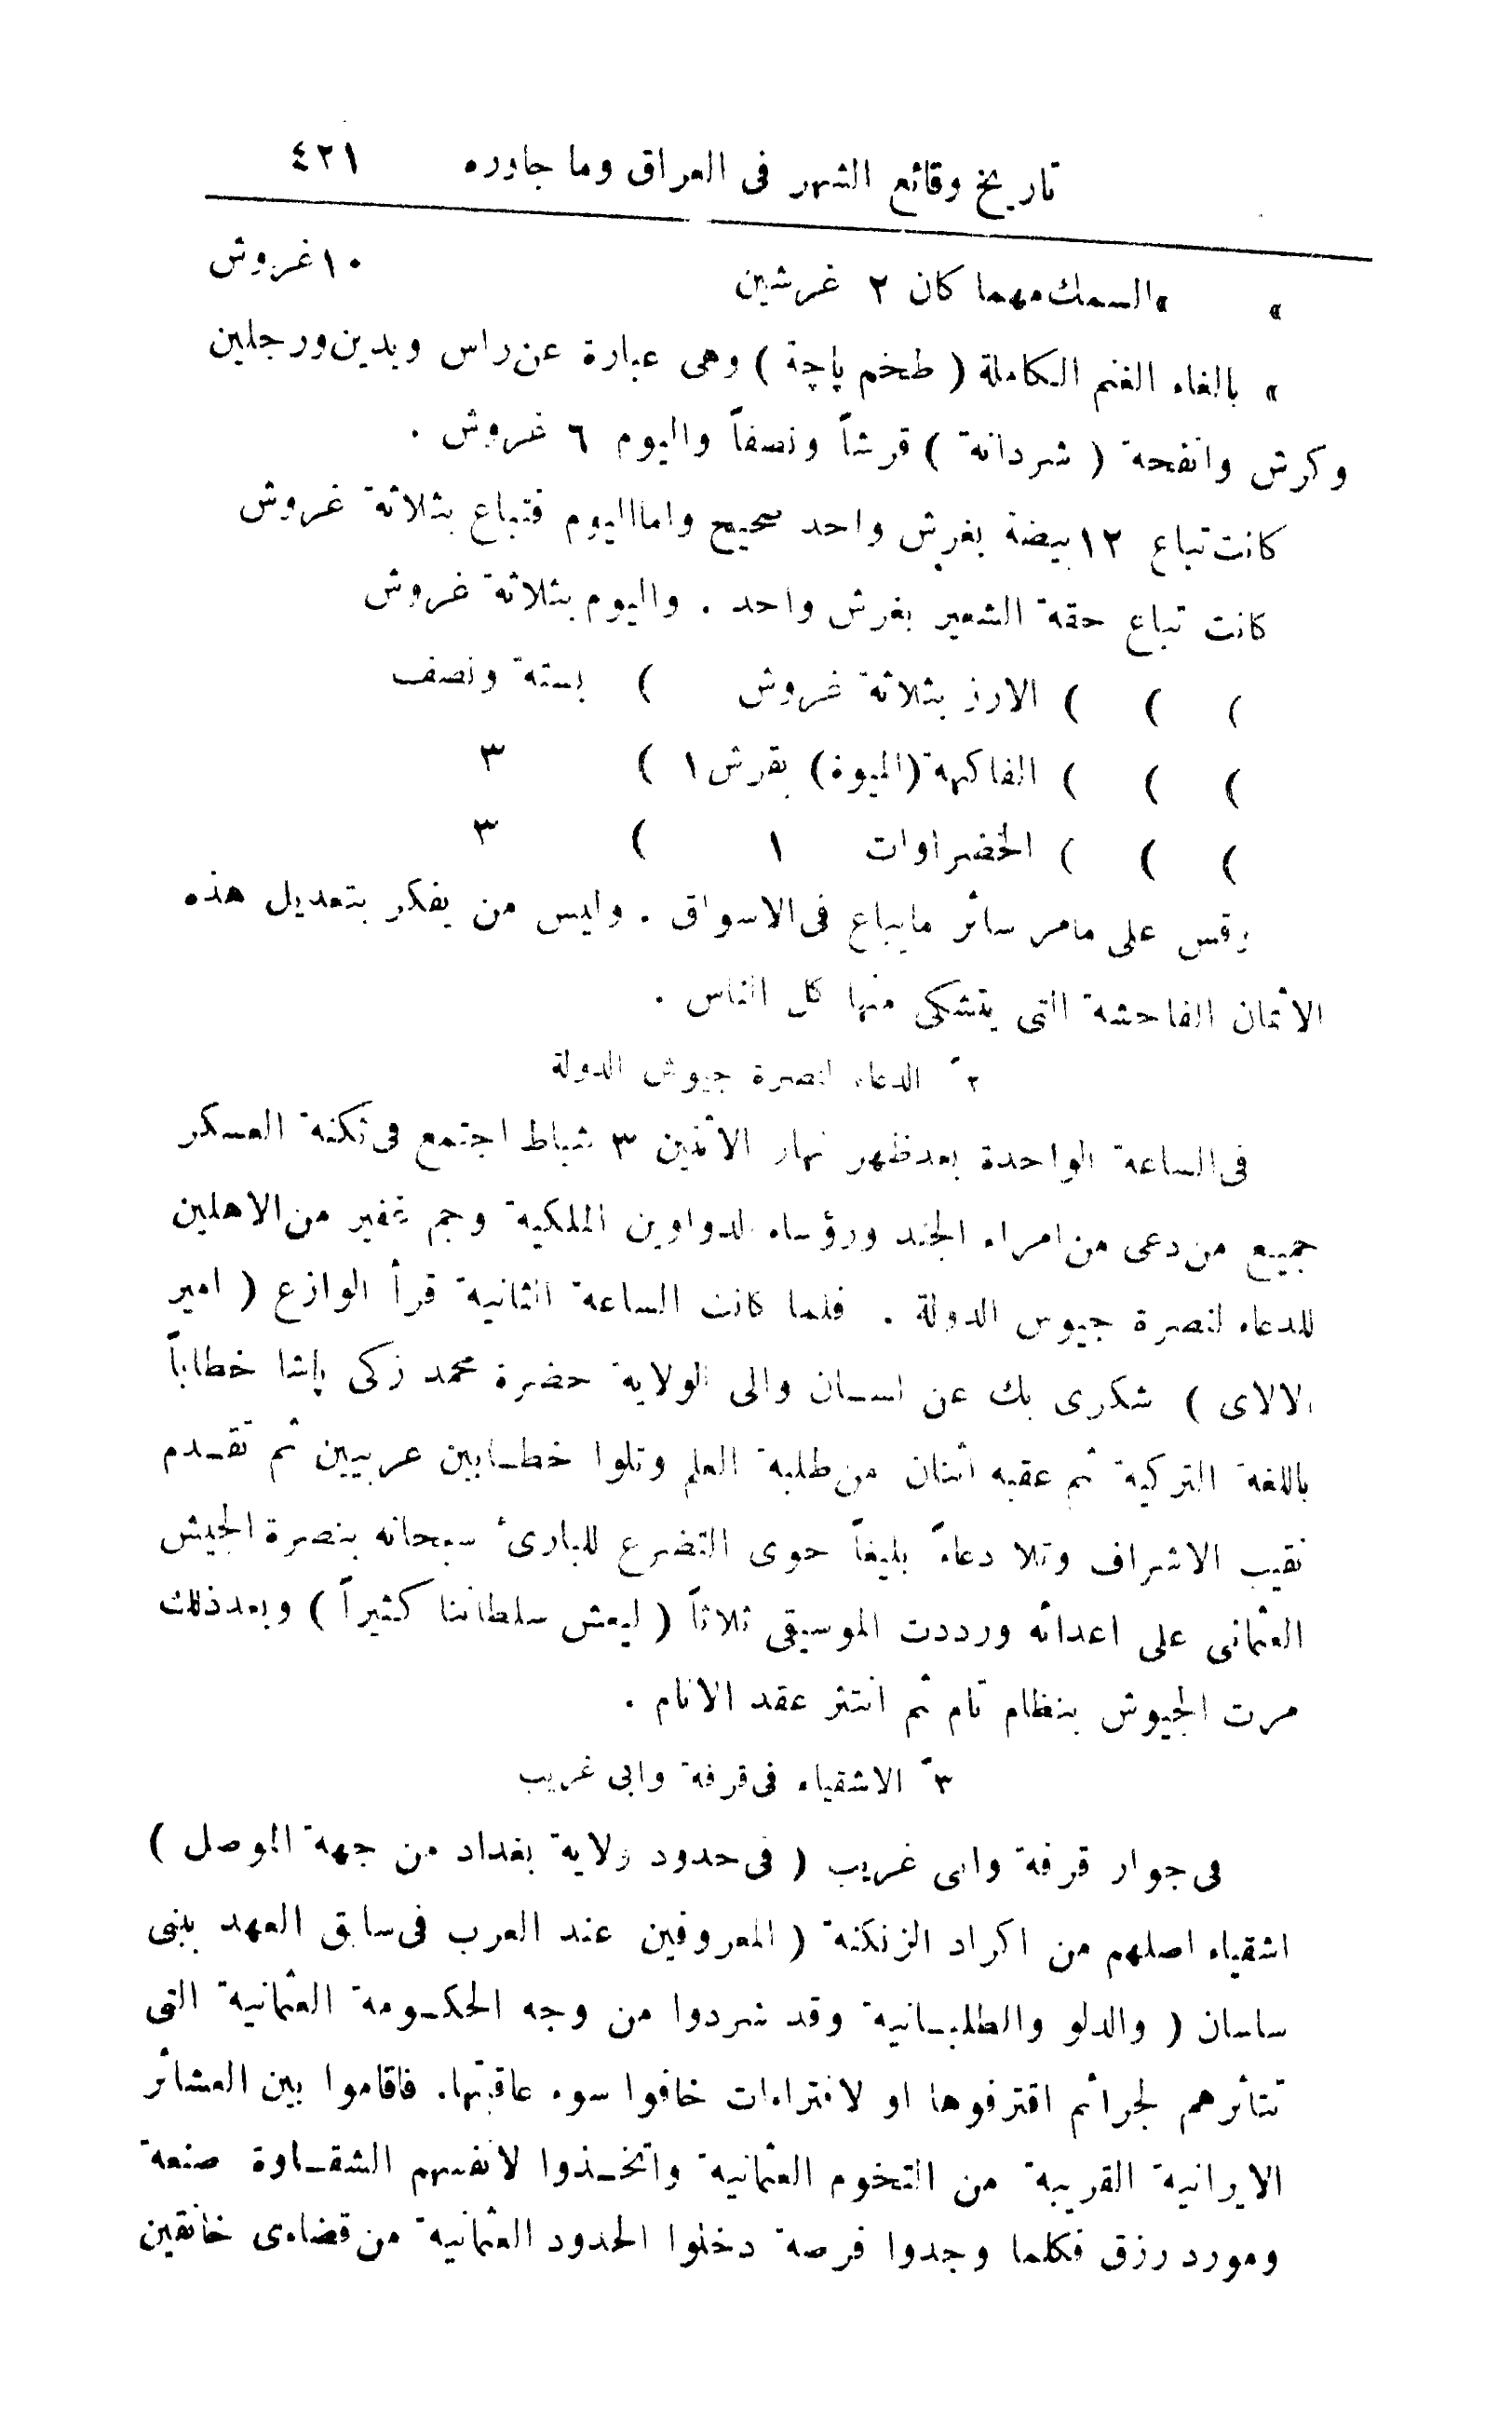 تاريخ وقائع الشهر فى العراق وما جاوره ٤٢١
» »السمك مهما كان ٢ غرشين ١٠ غروش
» بالغاء الغنم الكاملة ( طخم پاچة ) وهى عبارة عن راس ويدين ورجلين
وكرش وانفحة ( شردانة ) قرشاً ونصفاً واليوم ٦ غروش .
كانت تباع ١٢ بيضة بغرش واحد صحيح واما اليوم فتباع بثلاثة غروش
كانت تباع حقة الشعير بغرش واحد . واليوم بثلاثة غروش
) ) ) الارز بثلاثة غروش ) بستة ونصف
) ) ) الفاكهة (الميوة) بقرش ١ ) ٣
) ) ) الخضراوات ١ ) ٣
وقس على مامر سائر مايباع فى الاسواق . وليس من يفكر بتعديل هذه
الاثمان الفاحشة التى يتشكى منها كل الناس .
٢ً الدعاء لنصرة جيوش الدولة
فى الساعة الواحدة بعد ظهر نهار الاثنين ٣ شباط اجتمع فى ثكنة العسكر
جميع من دعى من امراء الجند ورؤساء الدواوين الملكية وجم غفير من الاهلين
للدعاء لنصرة جيوس الدولة . فلما كانت الساعة الثانية قرأ الوازع ( امير
الالاى ) شكرى بك عن لسـان والى الولاية حضرة محمد زكى پاشا خطاباً
باللغة التركية ثم عقبه اثنان من طلبة العلم وتلوا خطـابين عربيين ثم تقـدم
نقيب الاشراف وتلا دعاءً بليغاً حوى التضرع للبارئ سبحانه بنصرة الجيش
العثمانى على اعدائه ورددت الموسيقى ثلاثاً ( ليعش سلطاننا كثيراً ) وبعد ذلك
مرت الجيوش بنظام تام ثم انتثر عقد الانام .
٣ً الاشقياء فى قرفة وابى غريب
فى جوار قرفة وابى غريب ( فى حدود ولاية بغداد من جهة الموصل )
اشقياء اصلهم من اكراد الزنكنة ( المعروفين عند العرب فى سابق العهد ببنى
ساسان ( والدلو والطلبـانية وقد شردوا من وجه الحكـومة العثمانية التى
تتأثرهم لجرائم اقترفوها او لافتراءات خافوا سوء عاقبتها. فاقاموا بين العشائر
الايرانية القريبة من التخوم العثمانية واتخـذوا لانفسهم الشقـاوة صنعة
ومورد رزق فكلما وجدوا فرصة دخلوا الحدود العثمانية من قضاءى خانقين